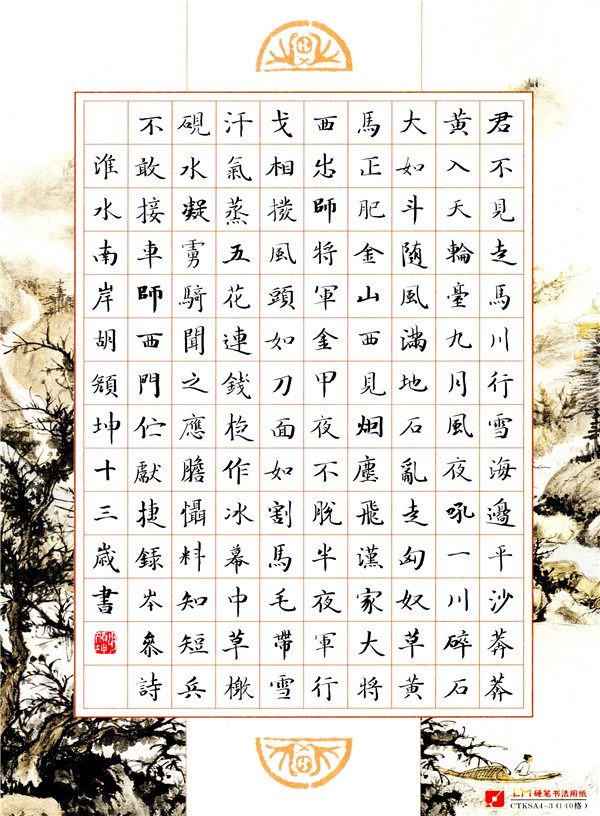 君不見走馬川行雪海邊平沙莽莽
黃入天輪臺九月風夜吼一川碎石
大如斗随風滿地石亂走匈奴草黃
馬正肥金山西見烟塵飛漢家大將
西出師將軍金甲夜不脫半夜軍行
戈相撥風頭如刀面如割馬毛帶雪
汗氣蒸五花連錢旋作冰幕中草檄
硯水凝虜騎聞之應膽懾料知短兵
不敢接車師西門佇獻捷錄岑參詩
淮水南岸胡頴坤十三歲書
硬笔书法用纸
CTKSA4-3(140格)